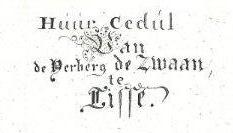 Húúr Cedúl
Van
de Herberg de Zwaan,
te
Lisse.